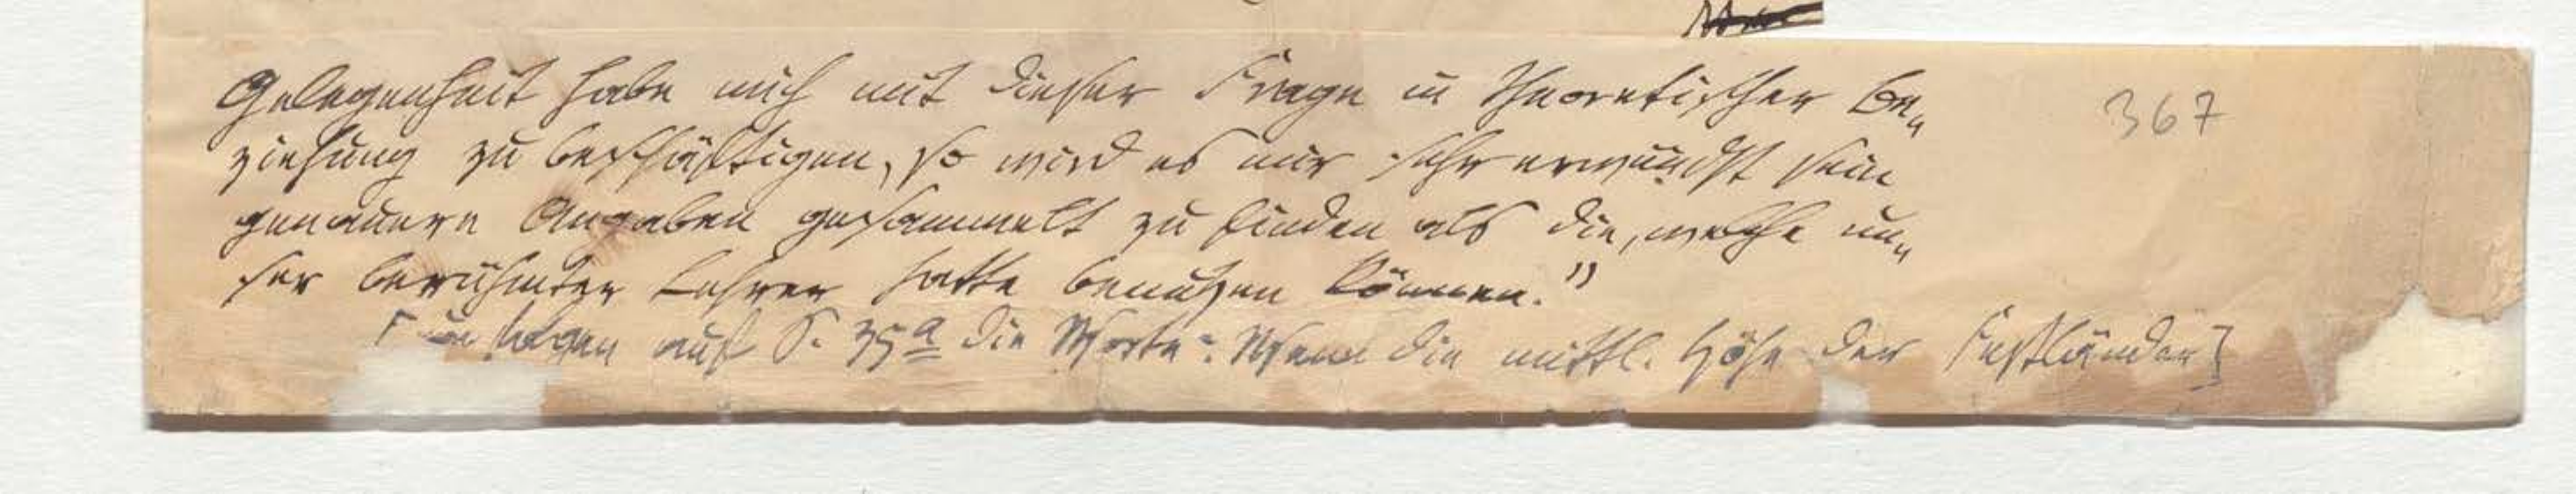 Gelegenheit habe mich mit dieser Frage in theoretischer Be„
ziehung zu beschäftigen, so wird es mir sehr erwündst sein
genauere Angaben gesammelt zu finden als die, welche un„
ser berühmter Lehrer hatte benutzen können.”
folgen auf S. 35a die Worte: Wenn die mittl. Höhe der Festländer]
367